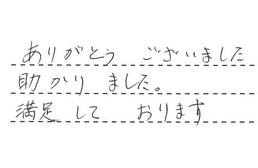 ありがとう ございました
助かり ました。
満足 して おります